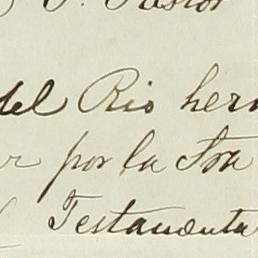 Pastor
del Rio her
r por la Sra
Testamenta